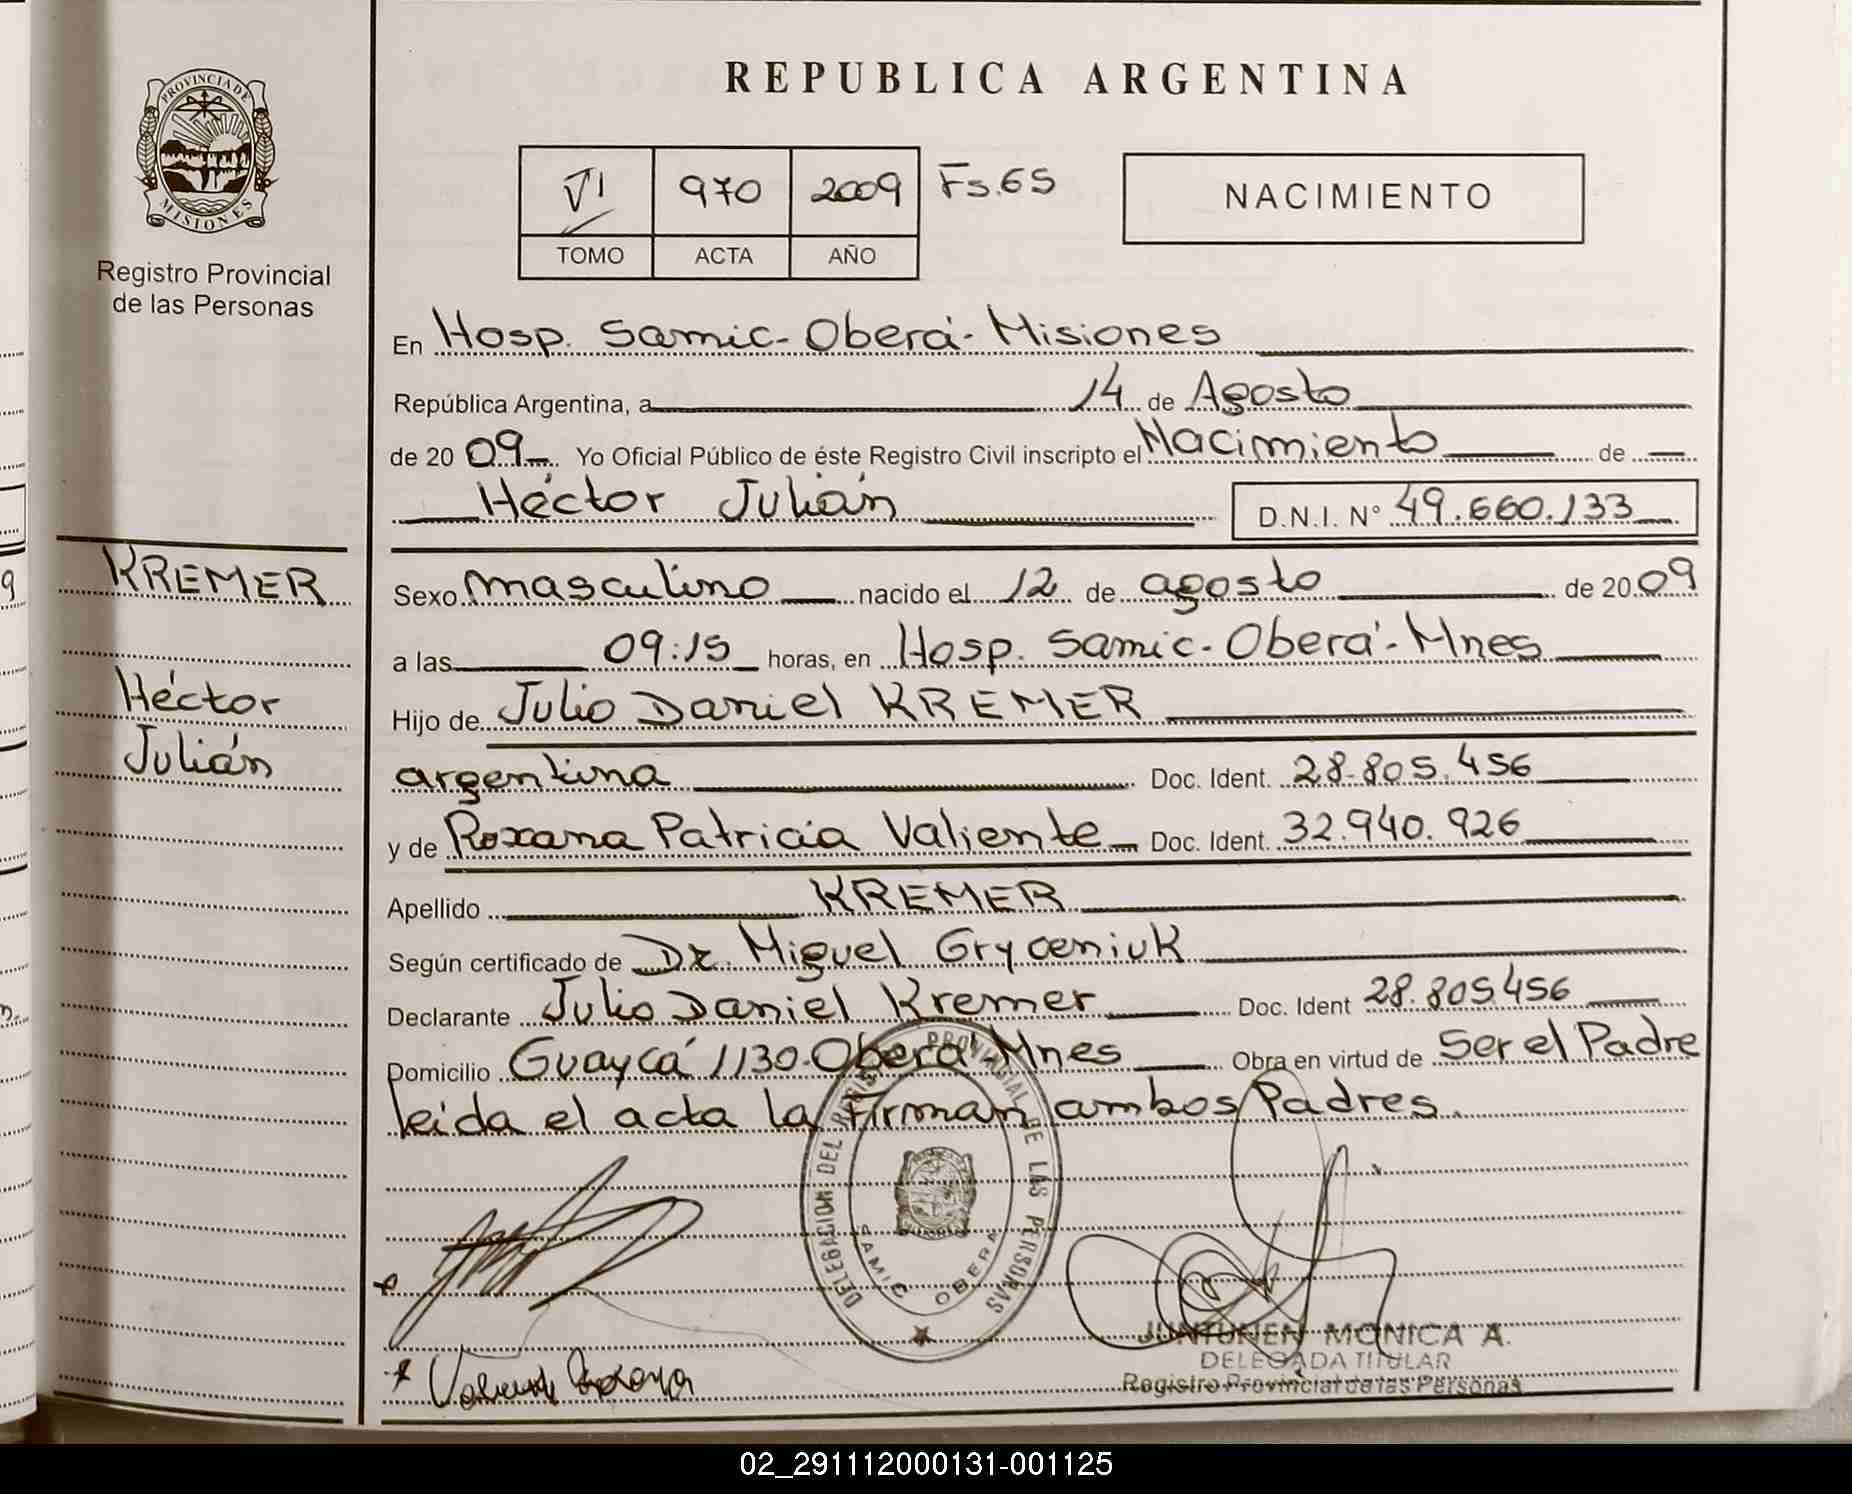 REPUBLICA ARGENTINA
PROVINCIA DE MISIONES
Registro Provincial
de las Personas
VI 970 2009 Fs.65
TOMO ACTA AÑO
NACIMIENTO
En Hosp. Samic-Oberá-Misiones
República Argentina, a 14 de Agosto
de 20 09 Yo Oficial Público de éste Registro Civil inscripto el Nacimiento de
Héctor Julián D.N.I. N° 49.660.133
KREMER
Héctor
Julián
Sexo masculino nacido el 12 de agosto de 20 09
a las 09:15 horas, en Hosp. Samic-Oberá-Mnes
Hijo de Julio Daniel KREMER
argentina Doc. Ident. 28.805.456
y de Roxana Patricia Valiente Doc. Ident. 32.940.926
Apellido KREMER
Según certificado de Dr. Miguel Gryceniuk
Declarante Julio Daniel Kremer Doc. Ident 28.805456
Domicilio Guaycá 1130-Oberá-Mnes Obra en virtud de Ser el Padre
leida el acta la Firman ambos Padres.
DELEGACION DEL REGISTRO PROVINCIAL DE LAS PERSONAS
SAMIC OBERA
JUNTUNEN MONICA A.
DELEGADA TITULAR
Registro Provincial de las Personas
02_291112000131-001125